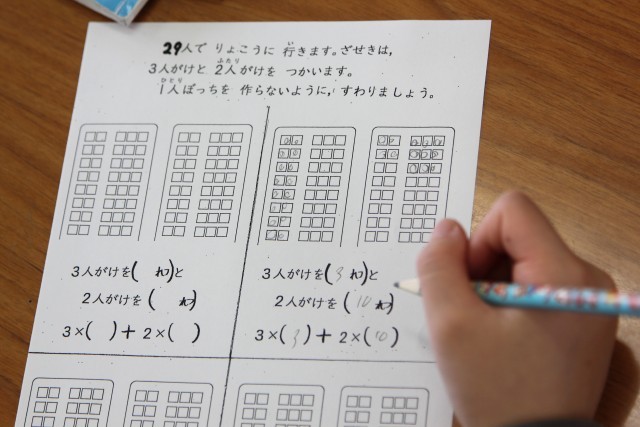 29人で りょこうに 行きます。ざせきは,
3人がけと 2人がけを つかいます。
1人ぼっちを 作らないように, すわりましょう。
3人がけを( )と
2人がけを( )
3×( )+2×( )
3人がけを(3 )と
2人がけを(10 )
3×(3)+2×(10)